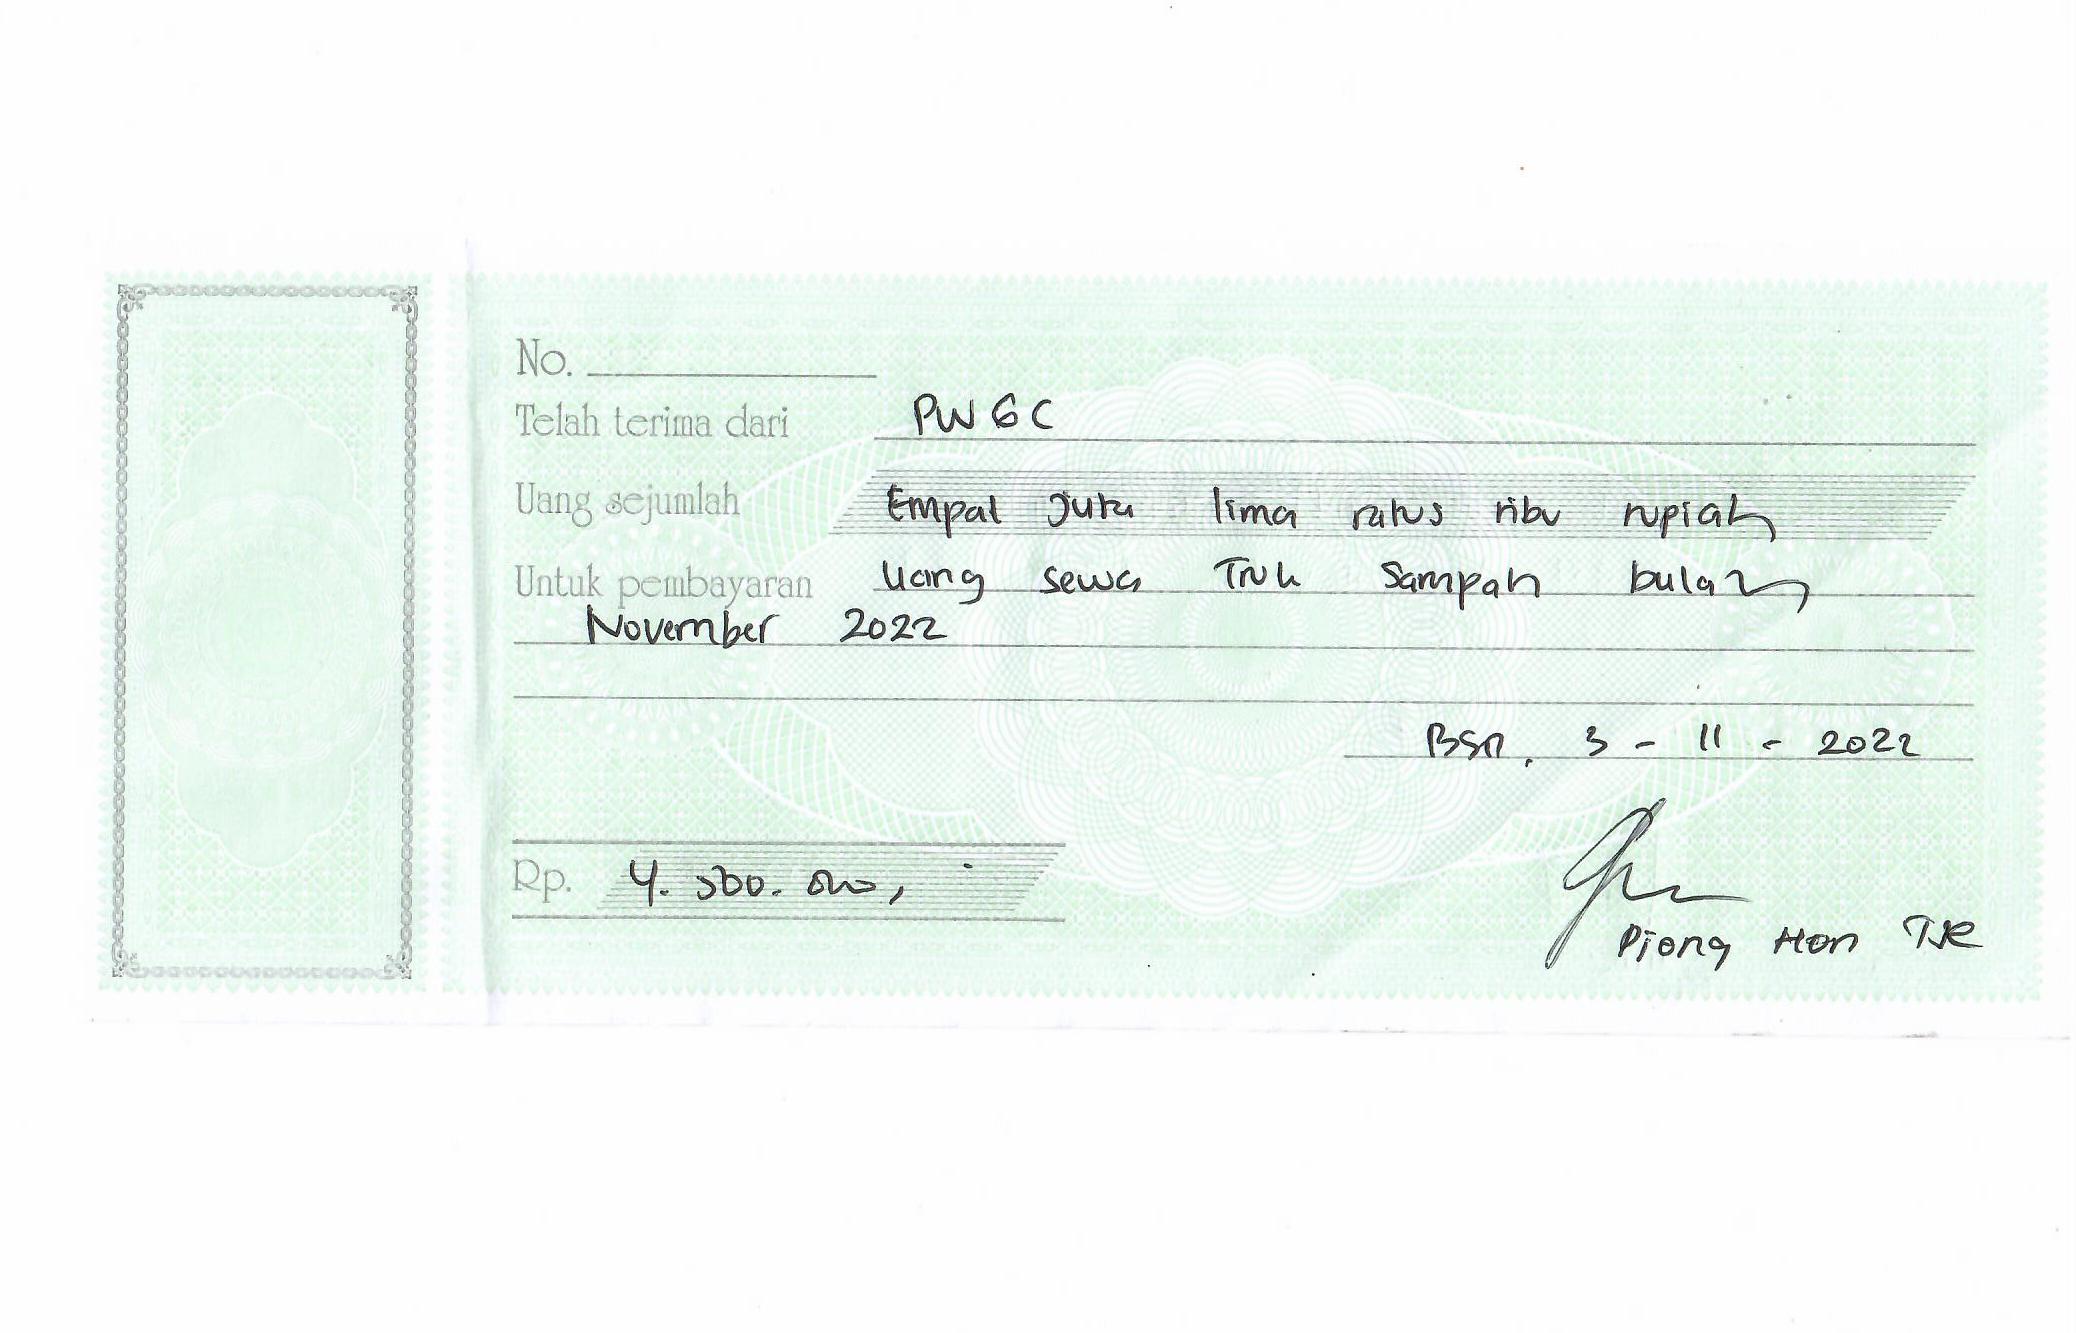 No.
Telah terima dari PWGC
Uang sejumlah Empat juta lima ratus ribu rupiah
Untuk pembayaran Uang sewa Truk Sampah bulan
November 2022
BSD, 3 - 11 - 2022
Rp. 4.500.000,-
Pjong Hon Tje